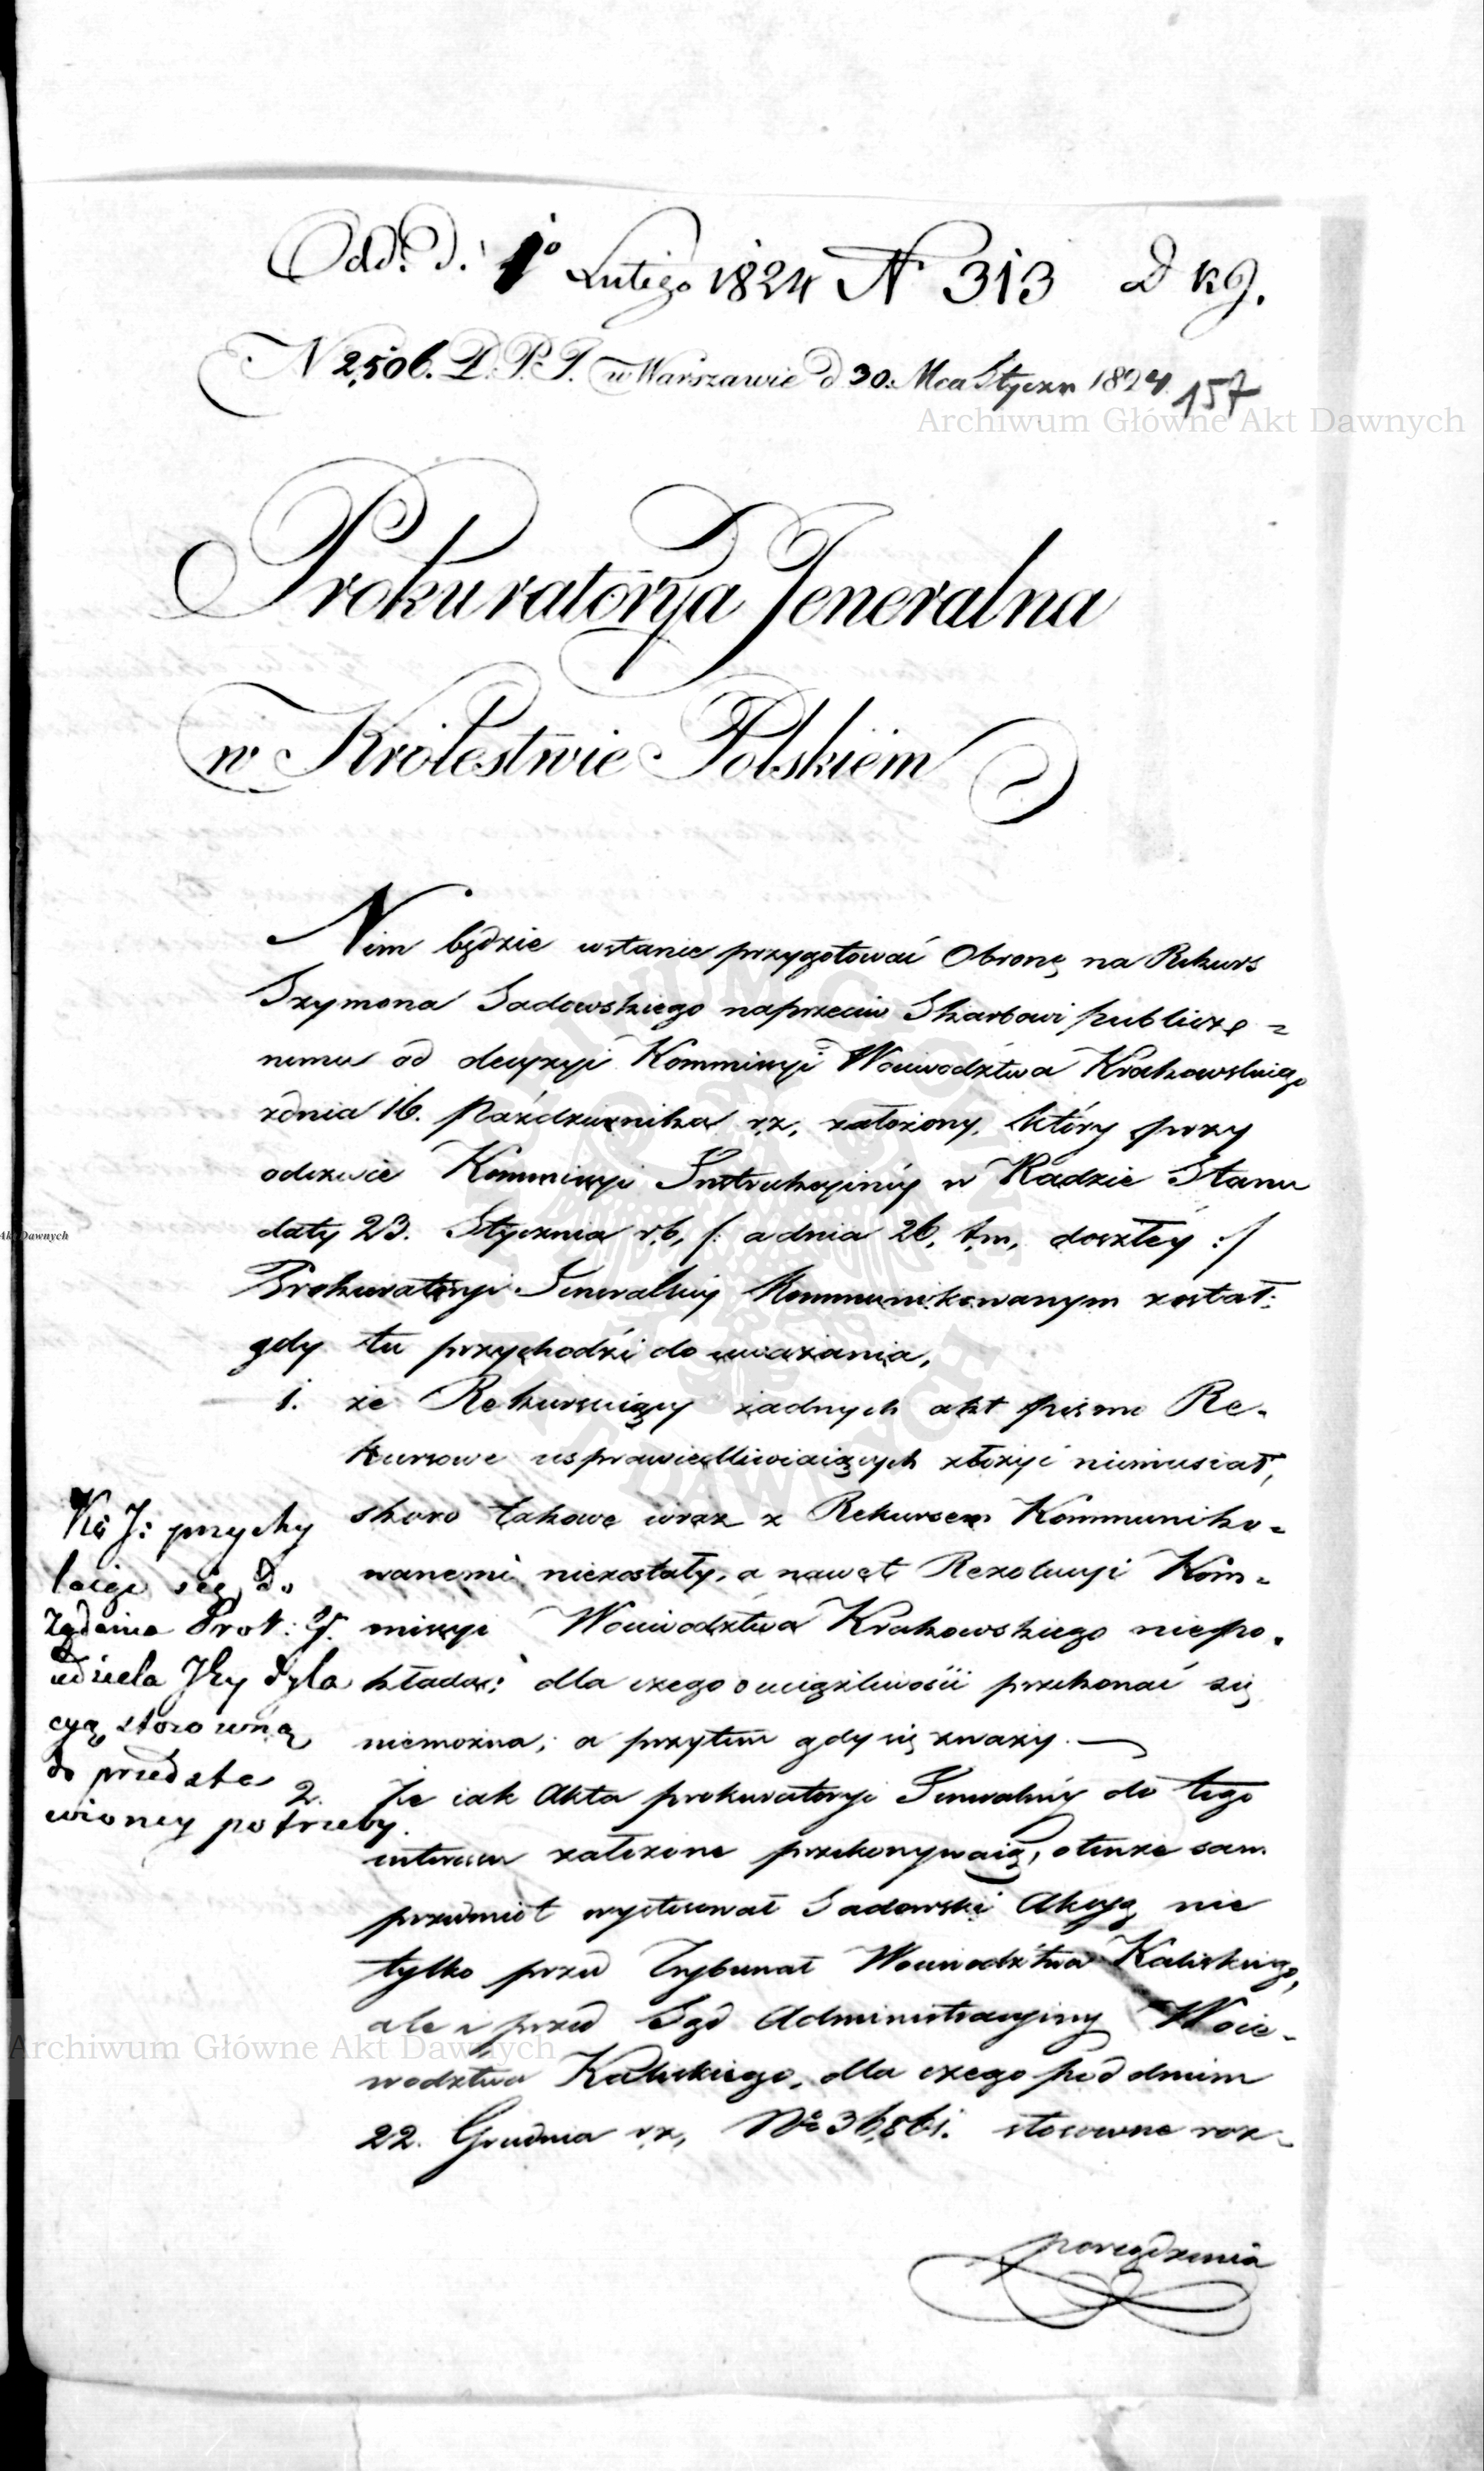 Odd. d. 1o Lutego 1824 N 313 D kg.
N 2,506. D. P. J. w Warszawie d 30. Mca Styczn 1824.
157
Archiwum Główne Akt Dawnych
Prokuratorya Jeneralna
w Królestwie Polskiém
Nim będzie wstanie przygotować Obronę na Rekurs
Szymona Sadowskiego naprzeciw Skarbowi publicze=
nemu od decyzyi Kommissyi Woiewodztwa Krakowskiego
zdnia 16. Października r.z. założony, który przy
odezwie Kommissyi Instrukcyinéy w Radzie Stanu
daty 23. Stycznia r.b, /: a dnia 26. t.m, doszłéy :/
Prokuratoryi Jeneralnéy Kommunikowanym został:
gdy tu przychodzi do uważania,
1. że Rekursuiący żadnych akt pismo Re-
kursowe usprawiedliwiaiących złożyć niemusiał,
skoro takowe wraz z Rekursem Kommuniko=
wanemi niezostały, a nawet Rezolucyi Kom=
missyi Woiewodztwa Krakowskiego niepo-
kłada; dla czego o uciążliwości przekonać się
niemożna; a przytem gdy się zważy. —
Ks J: przychy
laiąc się do
Żądania Prok: J.
udziela Jey dyla
cyą stosowną
do przedsta
wioney potrzeby.
2. Że iak Akta prokuratoryi Jeneralnéy do tego
interesu założone przekonywaią, o tenże sam
przedmiot wytoczył Sadowski Akcyą nie
tylko przed Trybunał Woiewodztwa Kaliskiego,
ale i przed Sąd Administracyiny Woie-
wodztwa Kaliskiego, dla czego pod dniem
22. Grudnia r.z, No 36,861. stosowne roz-
porządzenia
Archiwum Główne Akt Dawnych
Akt Dawnych